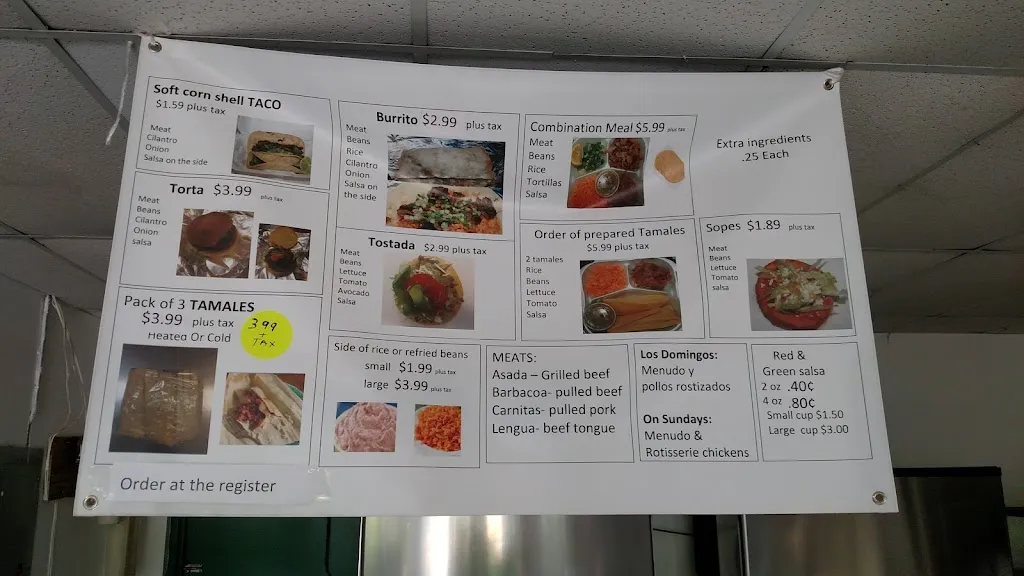 Soft corn shell TACO
$1.59 plus tax
Meat
Cilantro
Onion
Salsa on the side
Torta $3.99 plus tax
Meat
Beans
Cilantro
Onion
salsa
Pack of 3 TAMALES
$3.99 plus tax
Heated Or Cold
3 99
+
TAX
Burrito $2.99 plus tax
Meat
Beans
Rice
Cilantro
Onion
Salsa on
the side
Tostada $2.99 plus tax
Meat
Beans
Lettuce
Tomato
Avocado
Salsa
Side of rice or refried beans
small $1.99 plus tax
large $3.99 plus tax
Combination Meal $5.99 plus tax
Meat
Beans
Rice
Tortillas
Salsa
Order of prepared Tamales
$5.99 plus tax
2 tamales
Rice
Beans
Lettuce
Tomato
Salsa
Extra ingredients
.25 Each
Sopes $1.89 plus tax
Meat
Beans
Lettuce
Tomato
salsa
MEATS:
Asada – Grilled beef
Barbacoa- pulled beef
Carnitas- pulled pork
Lengua- beef tongue
Los Domingos:
Menudo y
pollos rostizados
On Sundays:
Menudo &
Rotisserie chickens
Red &
Green salsa
2 oz .40¢
4 oz .80¢
Small cup $1.50
Large cup $3.00
Order at the register